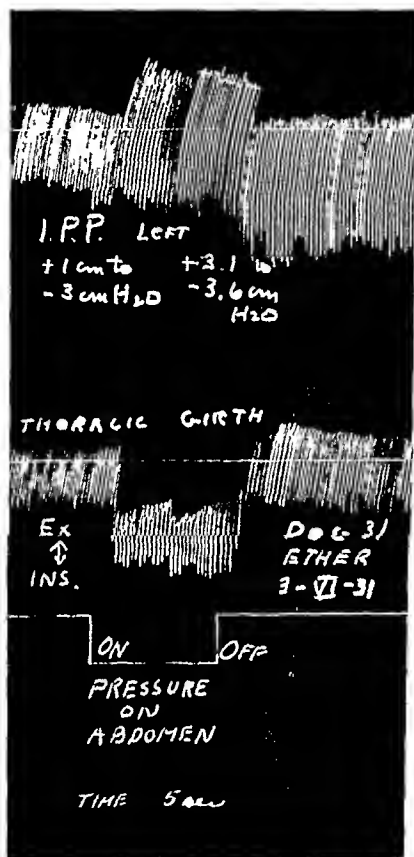 I.P.P. LEFT
+1 cm to +3.1 to
-3 cm H2O -3.6 cm
H2O
THORACIC GIRTH
EX
↕
INS.
DOG 31
ETHER
3-VI-31
ON OFF
PRESSURE
ON
ABDOMEN
TIME 5 sec